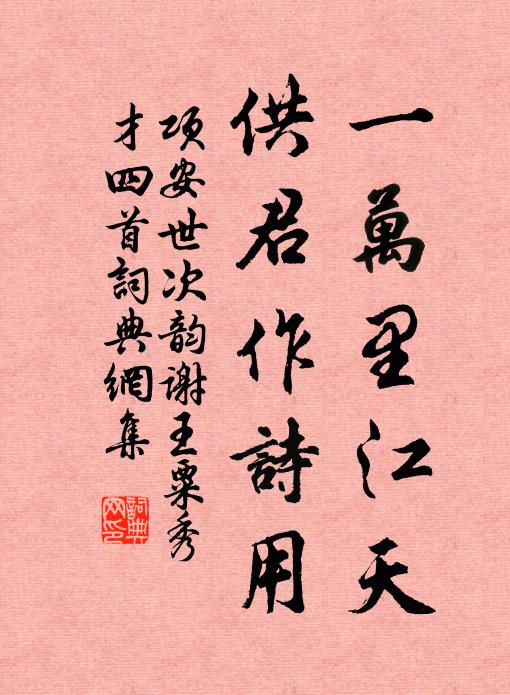 一萬里江天
供君作詩用
項安世次韵謝王粟秀
才四首詞典網集
詞典网印